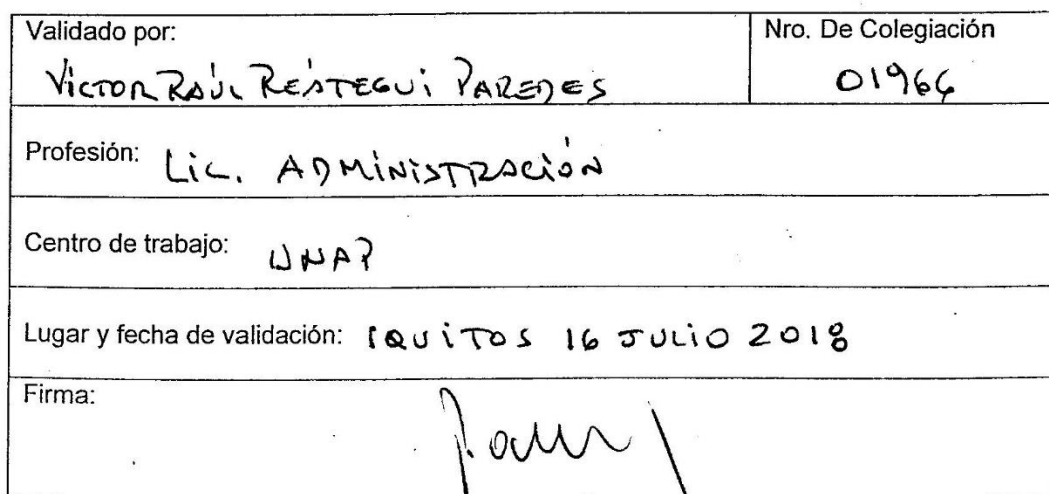 Validado por:
VICTOR RAÚL REÁTEGUI PAREDES
Nro. De Colegiación
01966
Profesión: Lic. ADMINISTRACIÓN
Centro de trabajo: UNAP
Lugar y fecha de validación: IQUITOS 16 JULIO 2018
Firma: